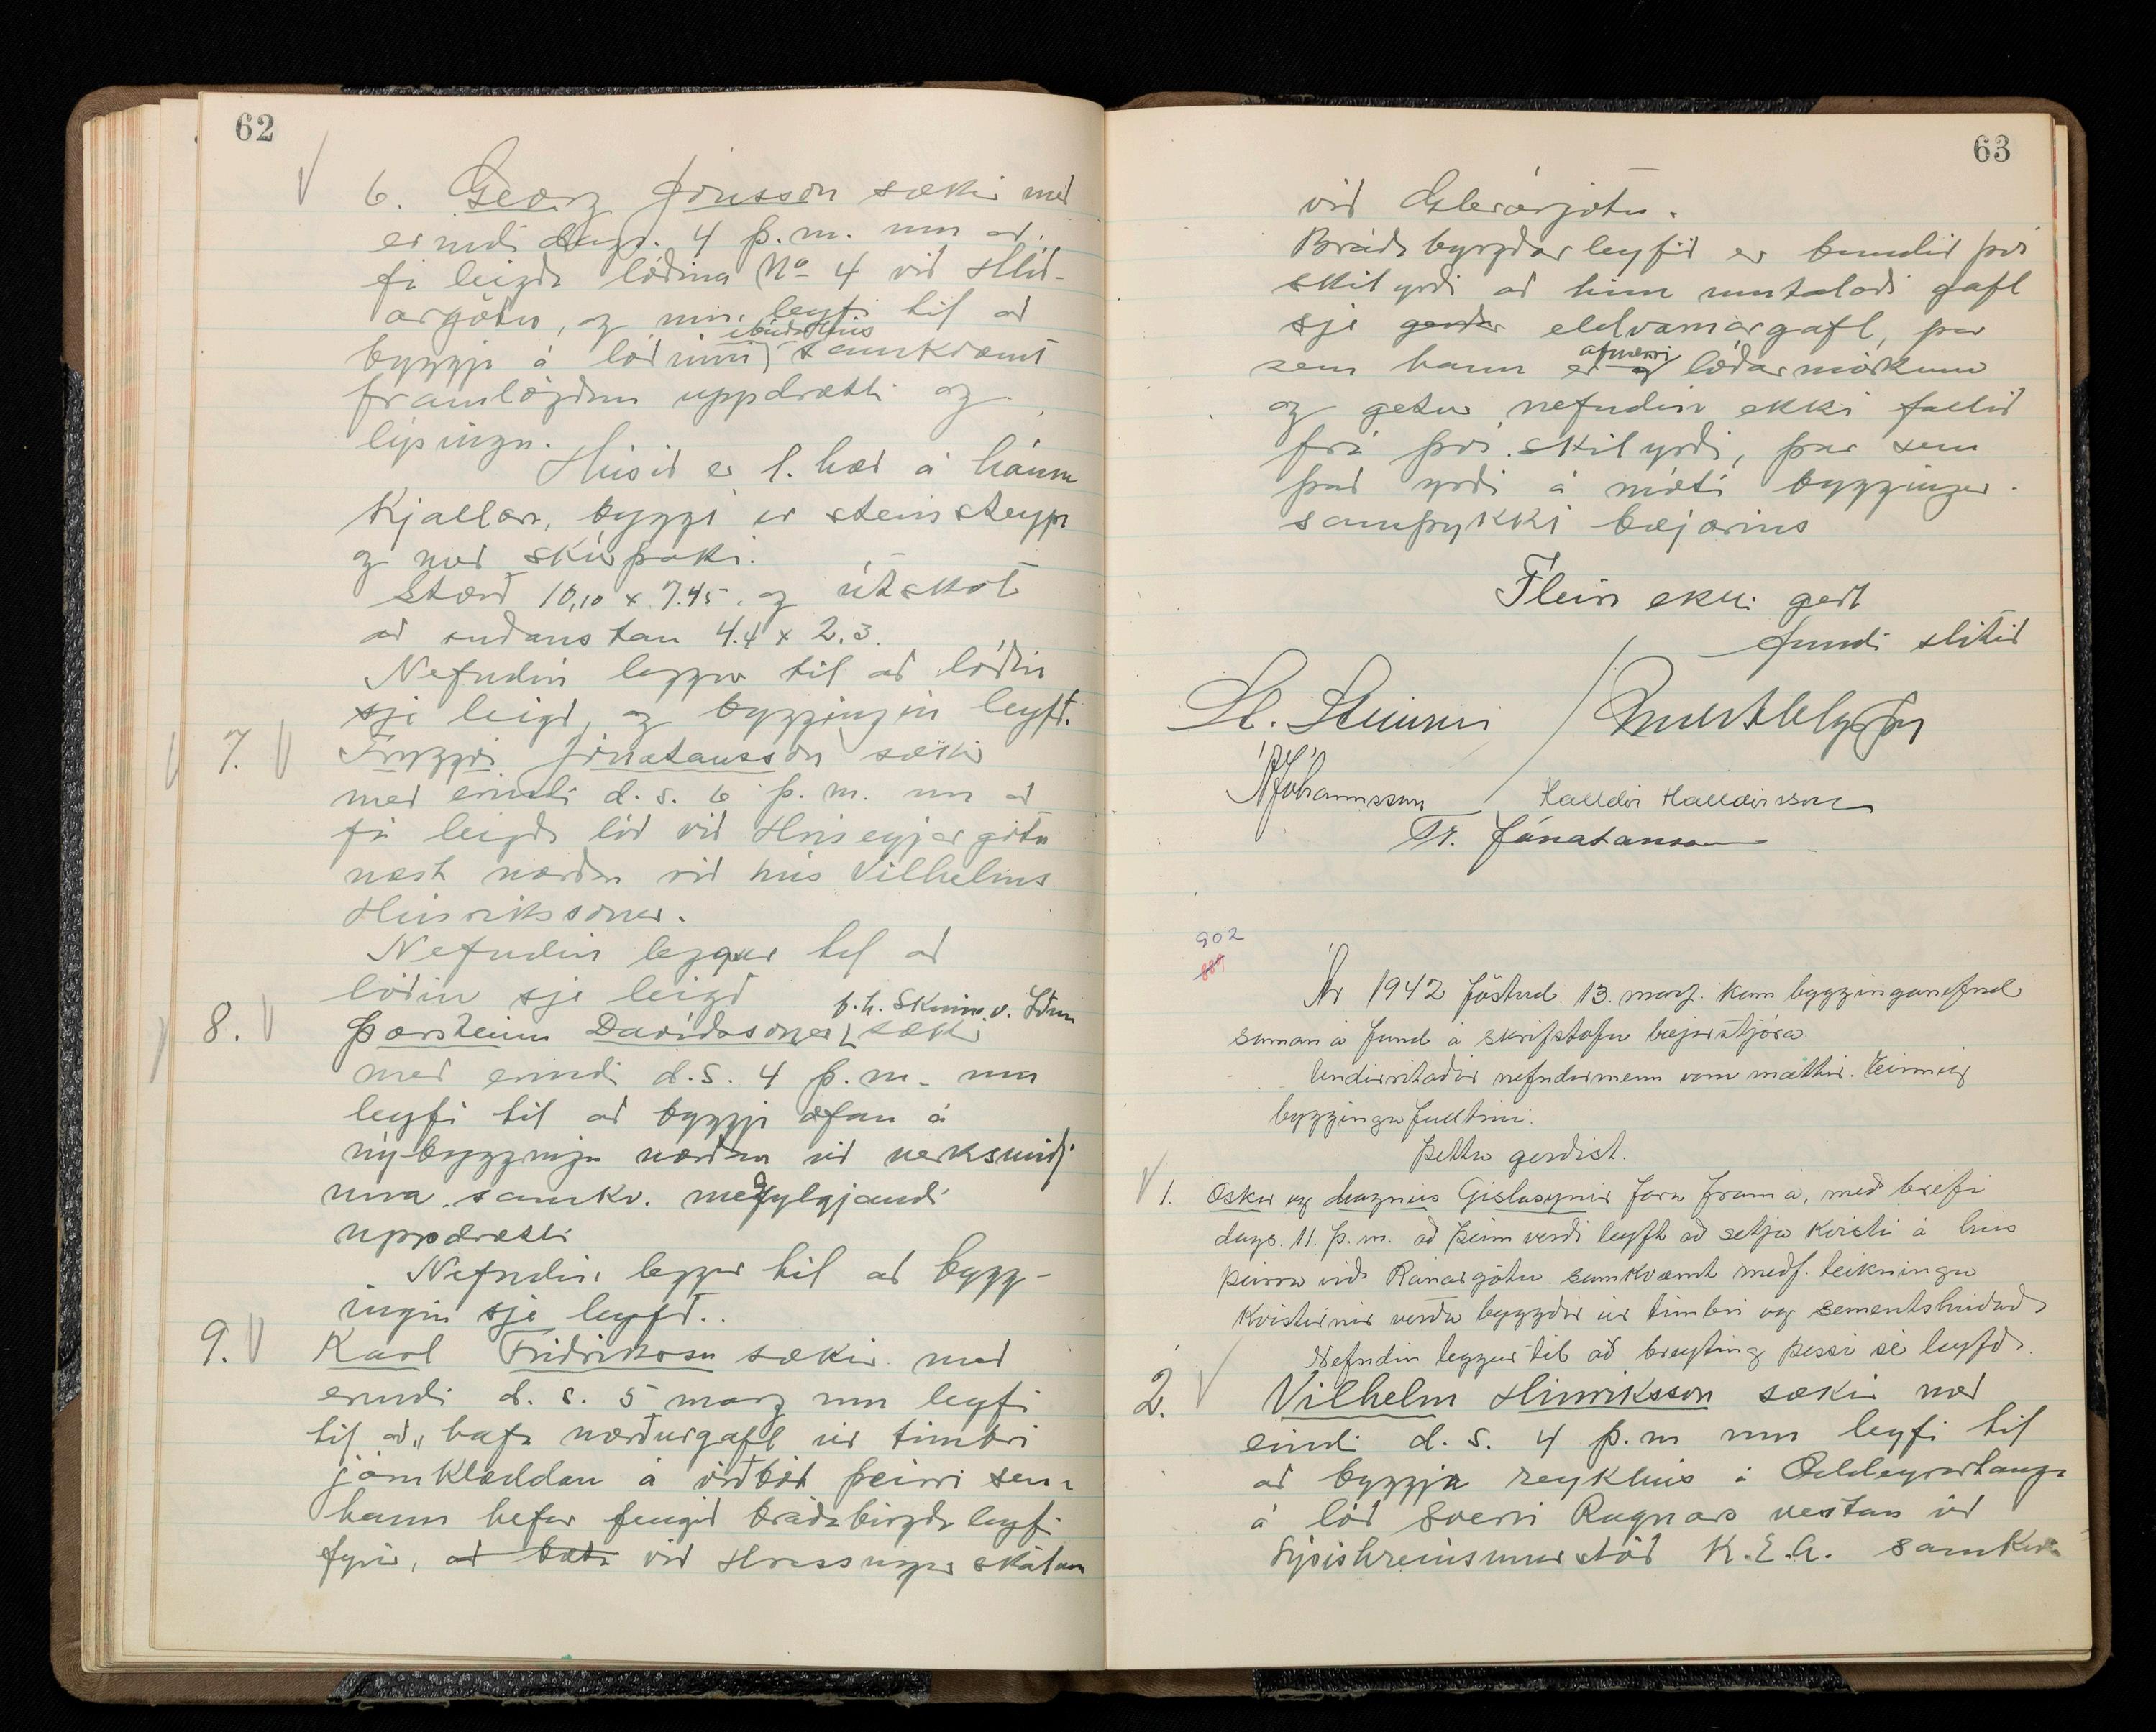 62
6. Georg Jónsson sækir með
erindi dags. 4 þ.m. um að
fá leigða lóðina No 4 við Hlíð-
argötu, og um leyfi til að
íbúðarhús
byggja á lóðinni samkvæmt
framlögðum uppdrætti og
lýsingu.
Húsið er 1. hæð á háum
kjallara, byggt úr steinsteypu
og með skúrþaki.
Stærð 10,10 x 7.45. og útskot
að suðaustan 4.4 x 2.3.
Nefndin leggur til að lóðin
sje leigð, og byggingin leyfð.
7. Tryggvi Jónatansson sækir
með erindi d.s. 6 þ.m. um að
fá leigða lóð við Hríseyjargötu
næst norðan við hús Vilhelms
Hinrikssonar.
Nefndin leggur til að
lóðin sje leigð
f.h. Skinnav. Iðunn
8. Þorsteinn Davíðsson sækir
með erindi d.s. 4 þ.m. um
leyfi til að byggja ofan á
nýbyggingu norðan við verksmiðj
una samkv. meðfylgjandi
uppdrætti
Nefndin leggur til að bygg-
ingin sje leyfð..
9. Karl Friðriksson sækir með
erindi d.s. 5 marz um leyfi
til að hafa norðurgafl úr timbri
járnklæddan á viðbót þeirri sem
hann hefur fengið bráðabirgða leyfi
fyrir, við Hressingarskálann
63
við Glerárgötu.
Bráðabyrgðarleyfið er bundið því
skilyrði að hinn umtalaði gafl
sje eldvarnargafl, þar
alnærri
sem hann er lóðarmörkum
og getur nefndin ekki fallið
frá því skilyrði, þar sem
það yrði á móti bygginga-
samþykkt bæjarins
Fleira ekki gert
fundi slitið
St. Steinsen
Jóhannsson Halldór Halldórsson
Tr. Jónatansson
902
889
Ár 1942 föstud. 13. marz. kom bygginganefnd
saman á fund á skrifstofu bæjarstjóra.
Undirritaðir nefndarmenn voru mættir. Einnig
byggingafulltrúi.
Þetta gerðist.
1. Óskar og Magnús Gíslasynir fara fram á, með bréfi
dags. 11. þ.m. að þeim verði leyft að setja kvisti á hús
þeirra við Ránargötu samkvæmt meðf. teikningu
Kvistirnir verða byggðir úr timbri og sementshúðaðir
Nefndin leggur til að breyting þessi sé leyfð.
2. Vilhelm Hinriksson sækir með
erindi d.s. 4 þ.m um leyfi til
að byggja reykhús á Oddeyrartanga
á lóð Sverri Ragnars vestan við
Lýsishreinsunarstöð K.E.A. samkv.